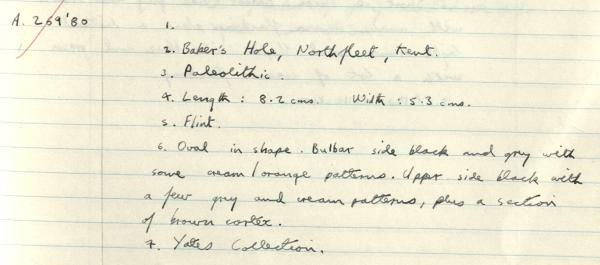 A. 269'80
1.
2. Baker's Hole, Northfleet, Kent.
3. Paleolithic.
4. Length : 8.2 cms. Width : 5.3 cms.
5. Flint.
6. Oval in shape. Bulbar side black and grey with
some cream/orange patterns. Upper side black with
a few grey and cream patterns, plus a section
of brown cortex.
7. Yates Collection.